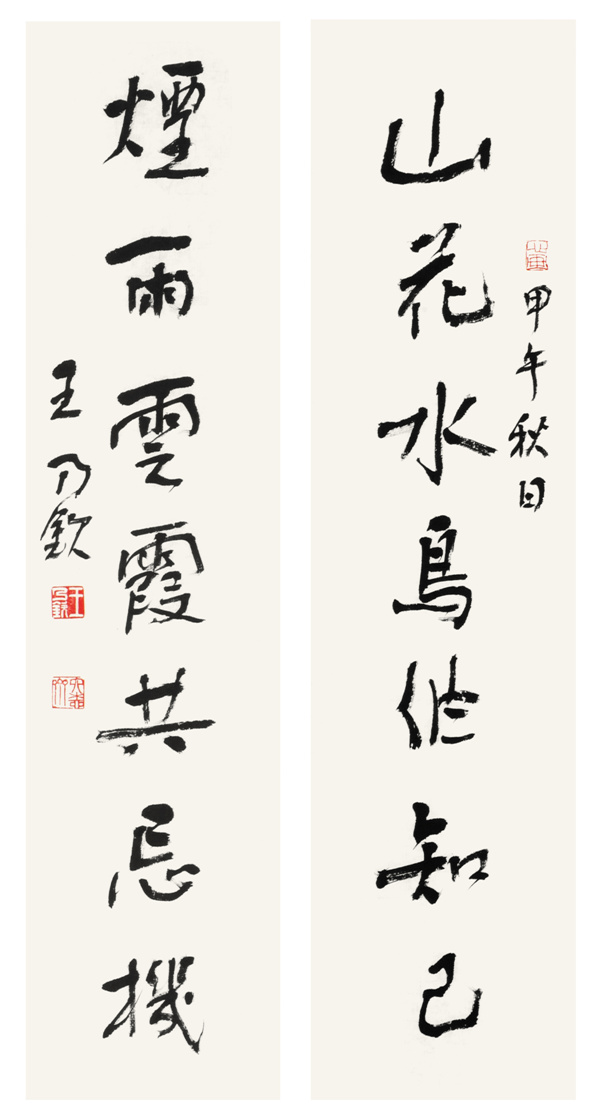 山花水鳥作知己
甲午秋日
煙雨雲霞共忘機
王乃欽